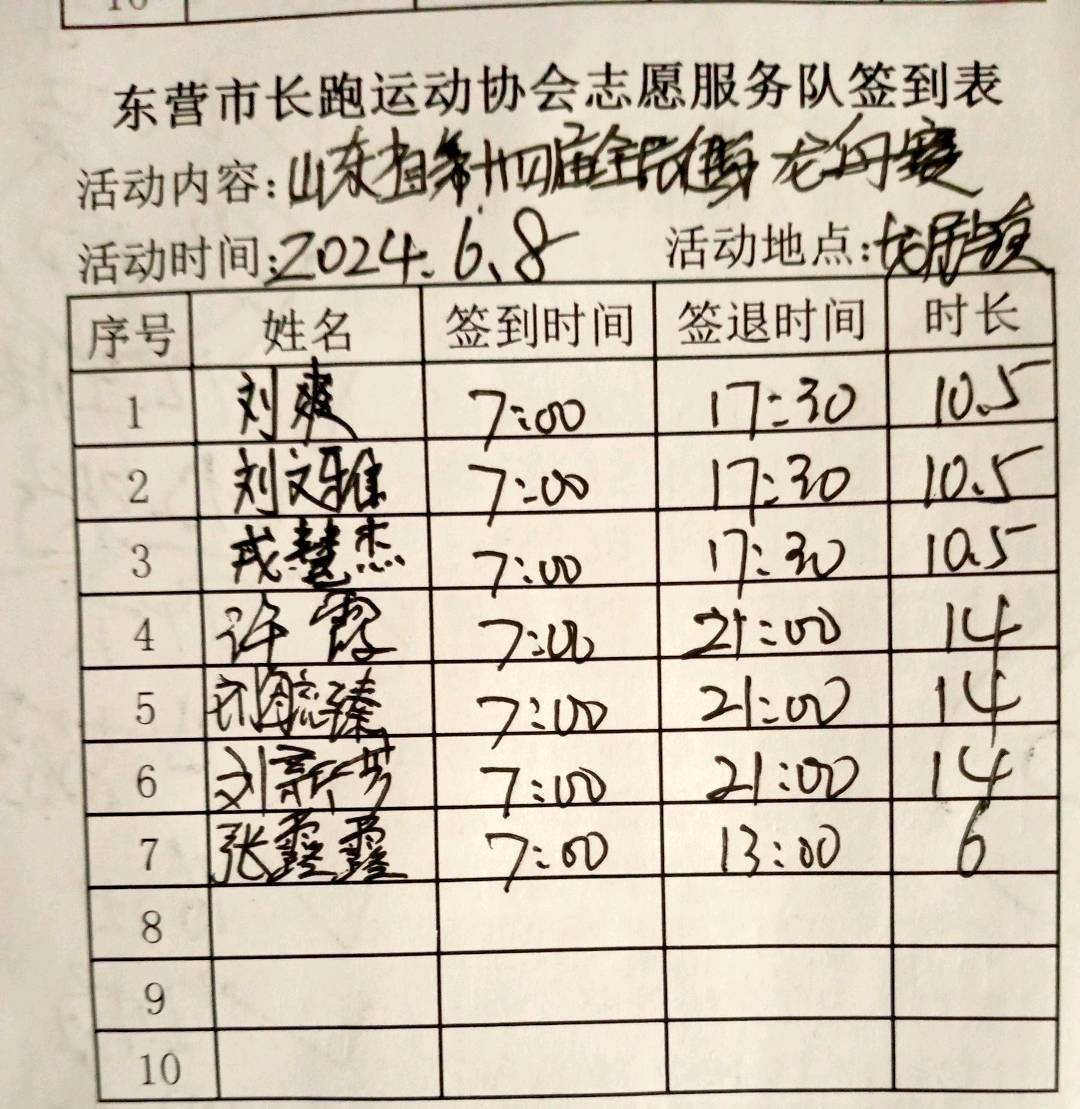 10
东营市长跑运动协会志愿服务队签到表
活动内容:山东省第十四届全民健身龙舟赛
活动时间:2024.6.8 活动地点:
序号 姓名 签到时间 签退时间 时长
1 刘爽 7:00 17:30 10.5
2 刘文雅 7:00 17:30 10.5
3 戎慧杰 7:00 17:30 10.5
4 许霞 7:00 21:00 14
5 7:00 21:00 14
6 刘新芳 7:00 21:00 14
7 张鑫鑫 7:00 13:00 6
8
9
10